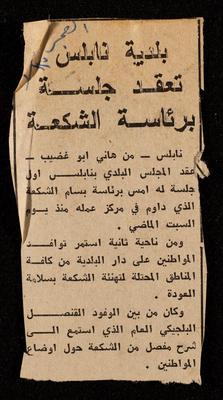 بلدية نابلس
تعقد جلسة
برئاسة الشكعة
نابلس – من هاني ابو غضيب –
عقد المجلس البلدي بنابلس اول
جلسة له امس برئاسة بسام الشكعة
الذي داوم في مركز عمله منذ يوم
السبت الماضي .
ومن ناحية ثانية استمر توافد
المواطنين على دار البلدية من كافة
المناطق المحتلة لتهنئة الشكعة بسلامة
العودة .
وكان من بين الوفود القنصل
البلجيكي العام الذي استمع الى
شرح مفصل من الشكعة حول اوضاع
المواطنين .